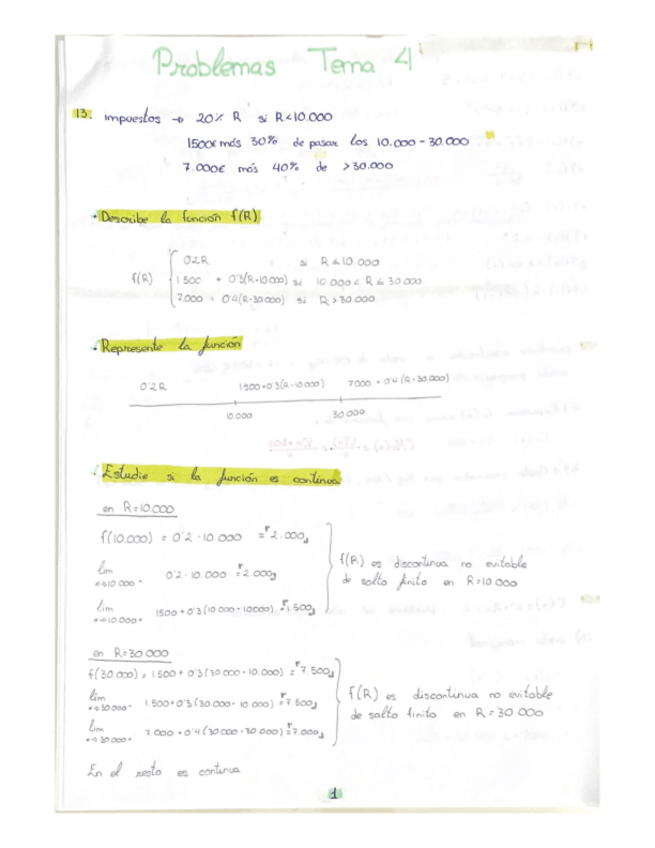 Problemas Tema 4
13. impuestos → 20% R si R<10.000
1500€ más 30% de pasar los 10.000 - 30.000
7.000€ más 40% de >30.000
Describe la función f(R)
0'2R si R≤10.000
f(R) 1.500 + 0'3(R-10.000) si 10.000< R ≤ 30.000
7.000 + 0'4(R-30.000) si R>30.000
Represente la función
0'2R 1500+0'3(R-10.000) 7000 + 0'4(R-30.000)
10.000 30.000
Estudie si la función es continua
en R=10.000
f(10.000) = 0'2 · 10.000 = 2.000
lim x→10.000⁻ 0'2 · 10.000 = 2.000
lim x→10.000⁺ 1500 + 0'3(10.000-10.000) = 1.500
f(R) es discontinua no evitable
de salto finito en R=10.000
en R=30.000
f(30.000) = 1.500 + 0'3(30.000 - 10.000) = 7.500
lim x→30.000⁻ 1.500+0'3(30.000 - 10.000) = 7.500
lim x→30.000⁺ 7.000 + 0'4(30.000 - 30.000) = 7.000
f(R) es discontinua no evitable
de salto finito en R = 30.000
En el resto es continua
1